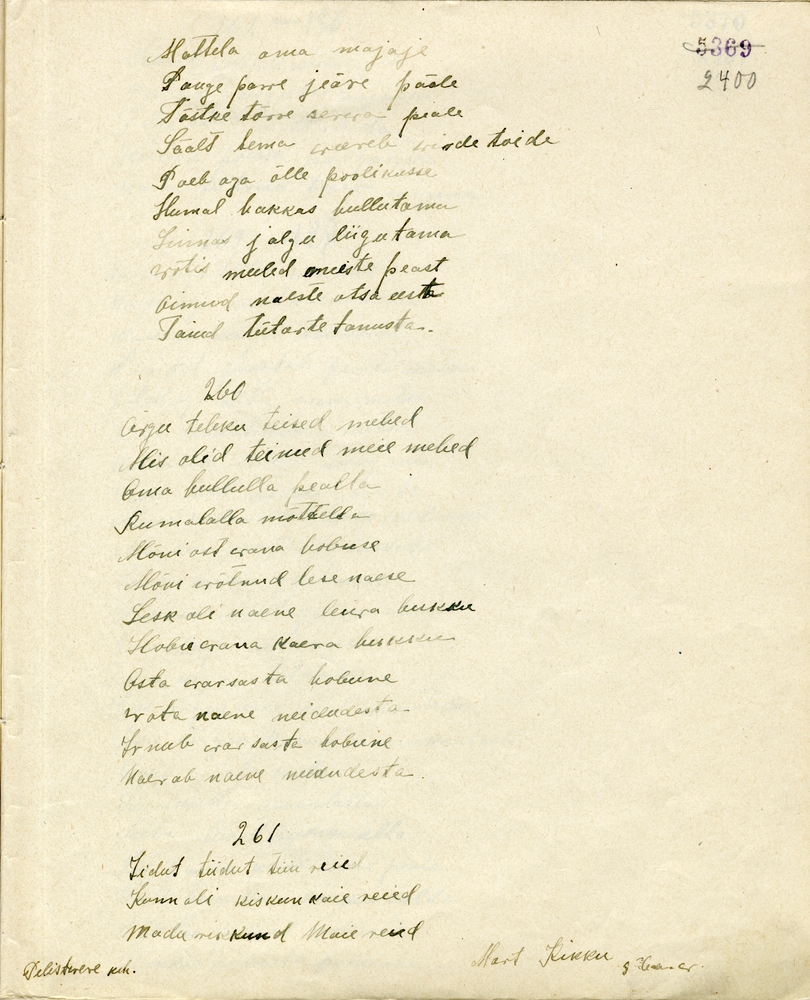 5369
2400
Mottela oma majaje
Pange parre jääre pääle
Tõstke tõrre serwa peale
Säält tema weereb wirde toide
Paeb aga õlle poolikusse
Humal hakkas hullutama
Linnas jalgu liigutama
wõtis meeled meiste peast
Oimud naeste otsa eesta
Tanud tütarte tanusta.
260
Ärgu tehku teised mehed
Mis olid teinud meie mehed
Oma hullulla pealla
Rumalalla mõttella
Mõni ost wana hobuse
Mõni wõtnud lese naese
Lesk oli naene leiwa hukku
Hobu wana kaera hukku
Osta warsasta hobune
wõta naene neidudesta
Irnub warsasta hobune
Naerab naene neidudesta.
261
Tidut tiidut tiiu reied
Konn oli kiskun kaie reied
Madu Maie reied
Pilistwere khk.
Mart Kikku